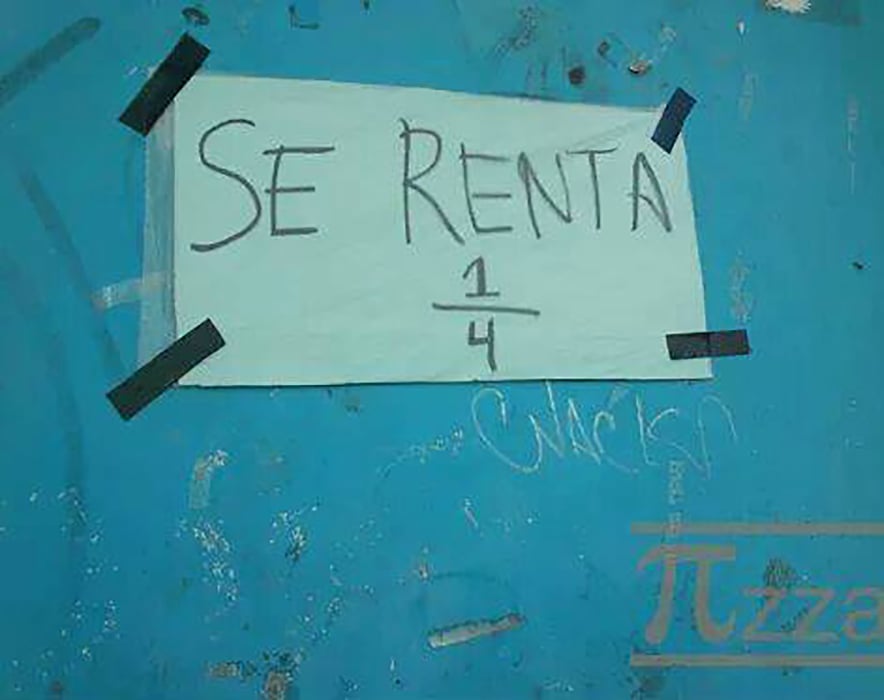 SE RENTA
1
4
πzza